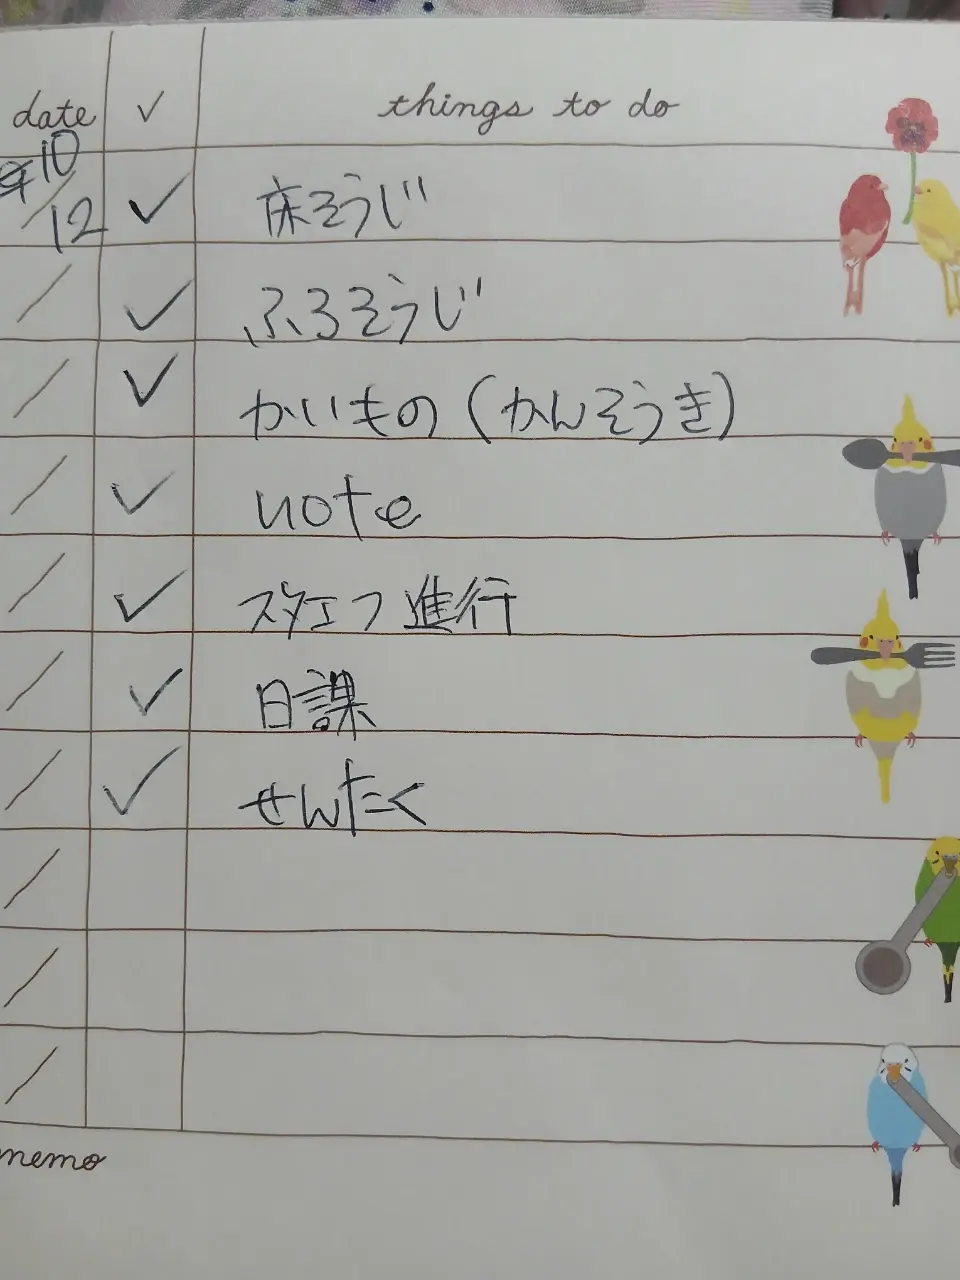 date ✓ things to do
10/12 ✓ 床そうじ
/ ✓ ふろそうじ
/ ✓ かいもの(かんそうき)
/ ✓ note
/ ✓ スタエフ進行
/ ✓ 日課
/ ✓ せんたく
/
/
/
memo